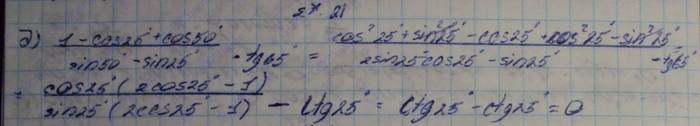 27.21
д) 1 - cos25° + cos50° / sin50° - sin25° - tg65° = cos²25° + sin²25° - cos25° + cos²25° - sin²25° / 2sin25°cos25° - sin25° - tg65° =
= cos25°(2cos25° - 1) / sin25°(2cos25° - 1) - ctg25° = ctg25° - ctg25° = 0